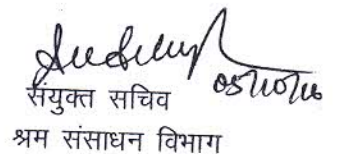 05/10/16
संयुक्त सचिव
श्रम संसाधन विभाग